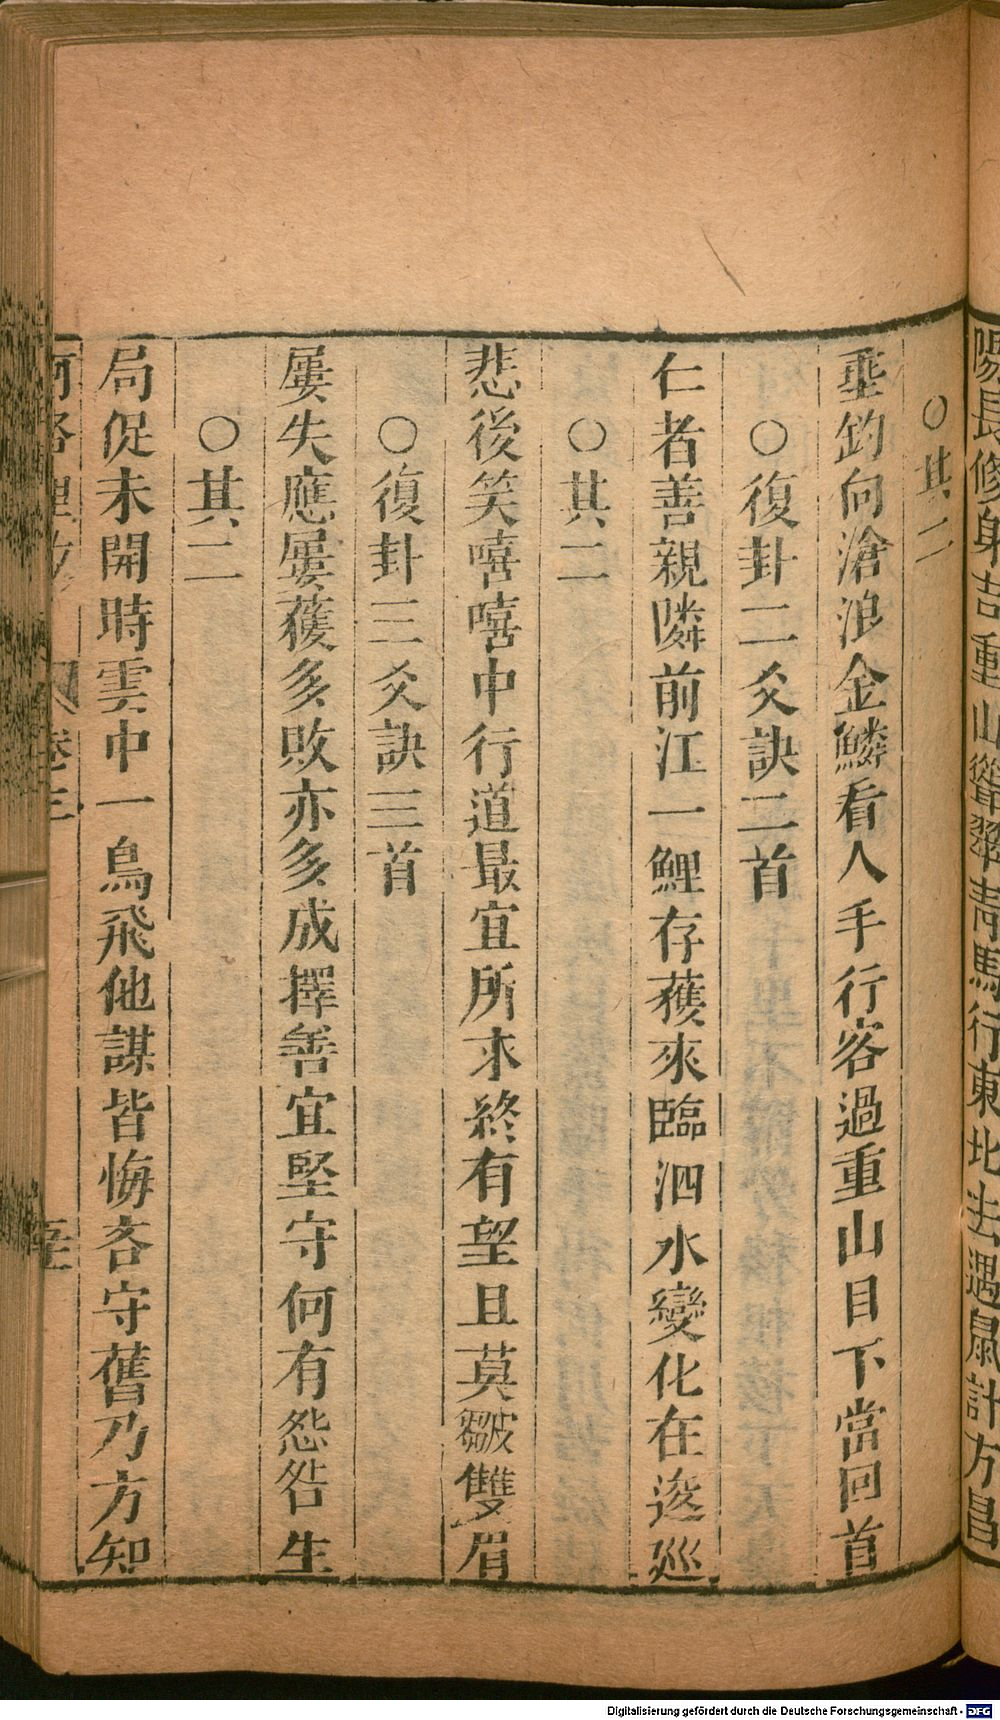 陽長修身吉重山聳翠青馬行東北去遇鼠計方昌
○其二
垂釣向滄浪金鱗看入手行客過重山目下當回首
○復卦二爻訣二首
仁者善親隣前江一鯉存獲來臨泗水變化在逡廵
○其二
悲後笑嘻嘻中行道最宜所求終有望且莫皺雙眉
○復卦三爻訣三首
屢失應屢獲多敗亦多成擇善宜堅守何有怨咎生
○其二
局促未開時雲中一鳥飛他謀皆悔吝守舊乃方知
河洛理数 卷三 五
Digitalisierung gefördert durch die Deutsche Forschungsgemeinschaft - DFG